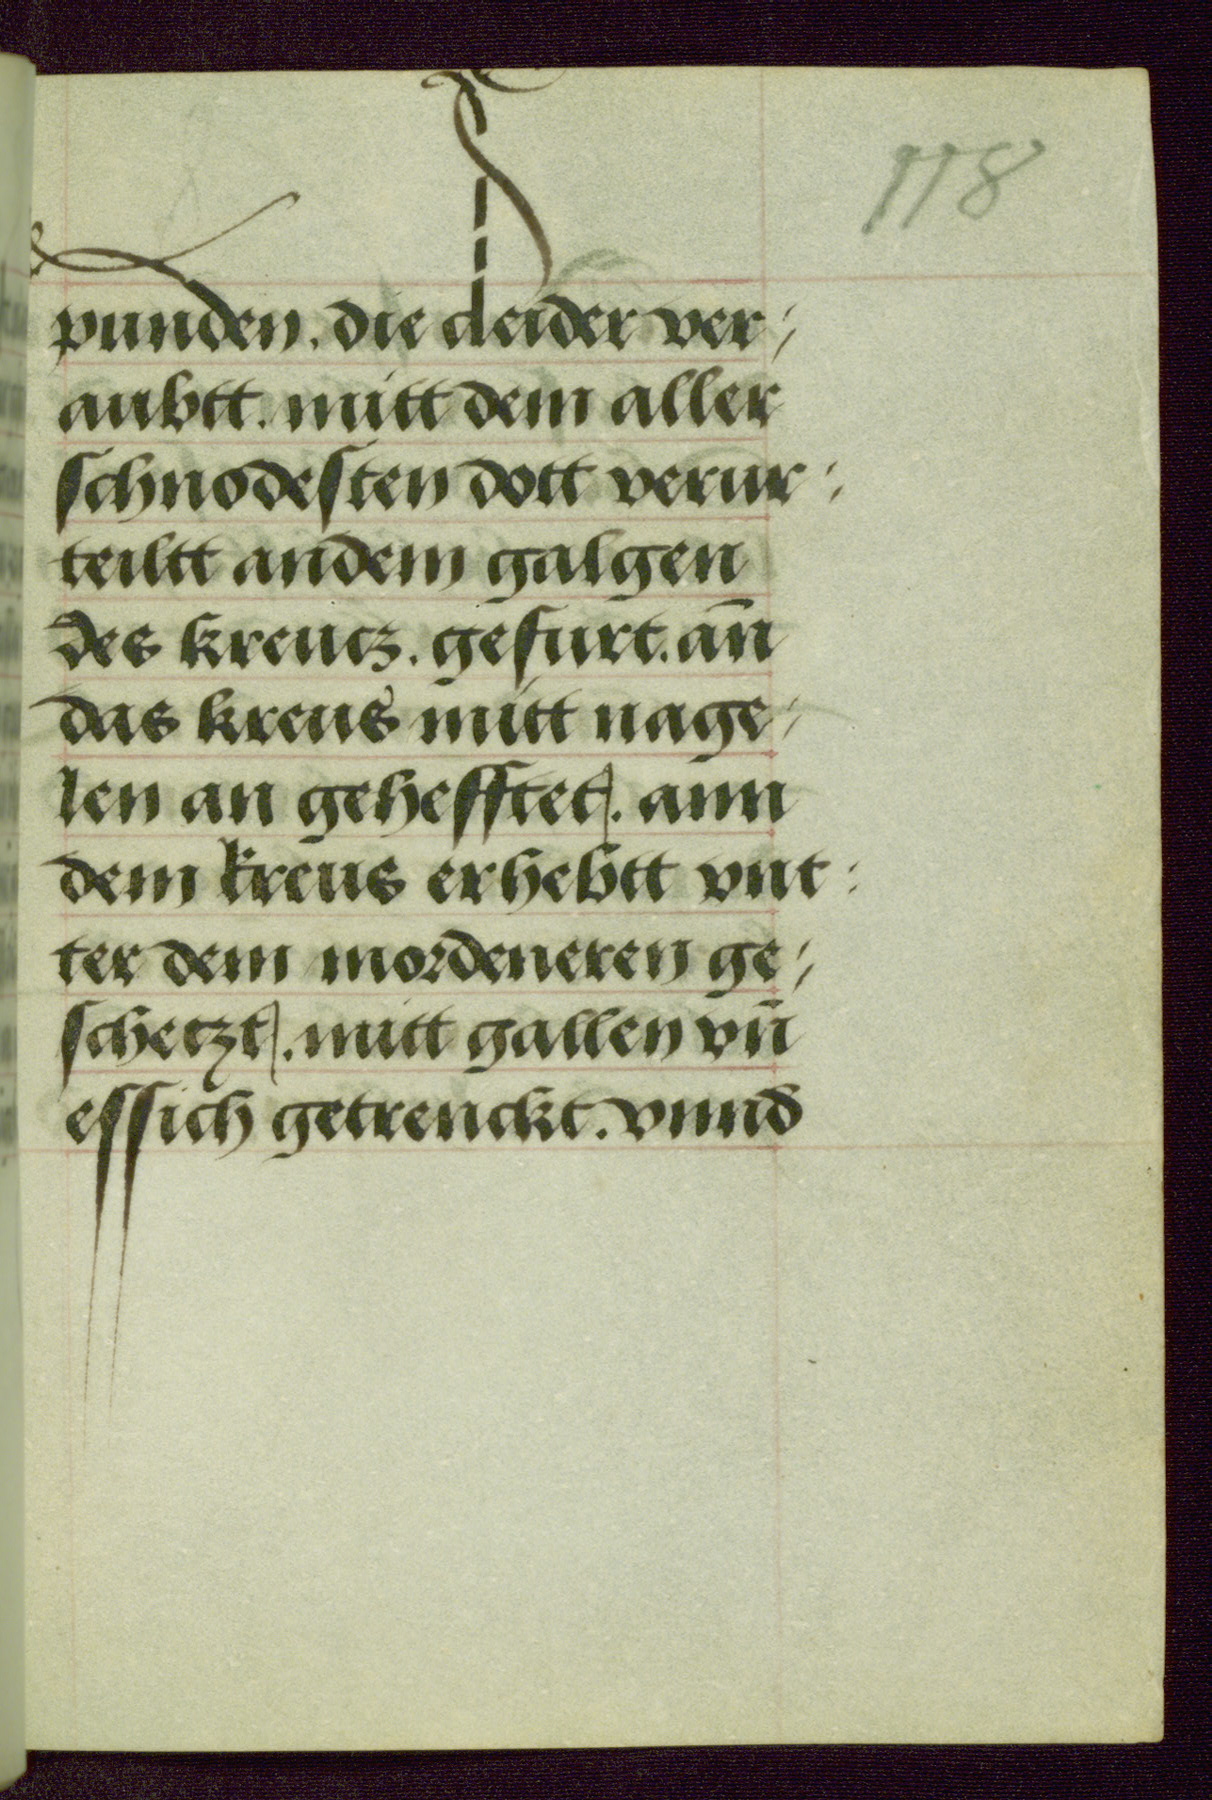 118
punden. die cleider ver⸗
aubtt. mitt dem aller
schnodesten dott verur⸗
teiltt andem galgen
des kreutz. gefurt. an̄
das kreus mitt nage⸗
len an gehefftet. ann
dem kreus erhebtt vnt⸗
ter dem mordeneren ge⸗
schetzt. mitt gallen vn̄
essich getrenckt. vnnd